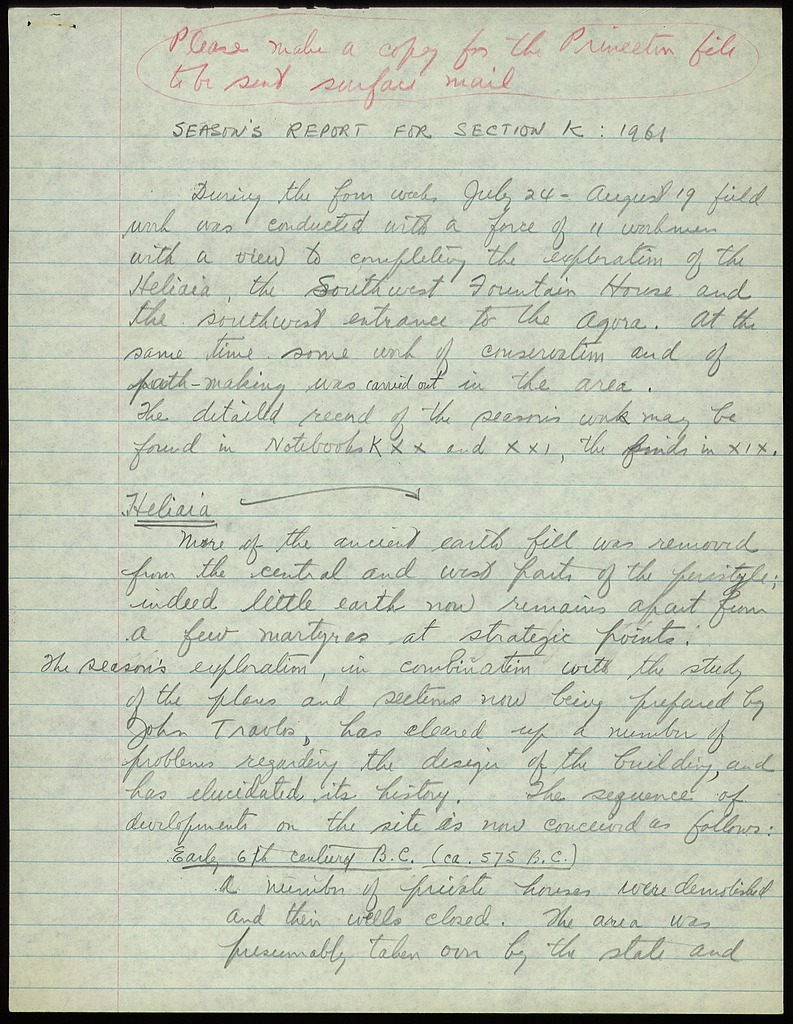 Please make a copy for the Princeton file
to be sent surface mail
SEASON'S REPORT FOR SECTION K : 1961
During the four weeks July 24 - August 19 field
work was conducted with a force of 11 workmen
with a view to completing the exploration of the
Heliaia, the Southwest Fountain House and
the southwest entrance to the Agora. At the
same time some work of conservation and of
path-making was carried out in the area.
The detailed record of the season's work may be
found in Notebooks K XX and XXI, the finds in XIX.
Heliaia
More of the ancient earth fill was removed
from the central and west parts of the peristyle;
indeed little earth now remains apart from
a few martyres at strategic points.
The season's exploration, in combination with the study
of the plans and sections now being prepared by
John Travlos, has cleared up a number of
problems regarding the design of the building, and
has elucidated its history. The sequence of
developments on the site is now conceived as follows:
Early 6th century B.C. (ca. 575 B.C.)
A number of private houses were demolished
and their wells closed. The area was
presumably taken over by the state and